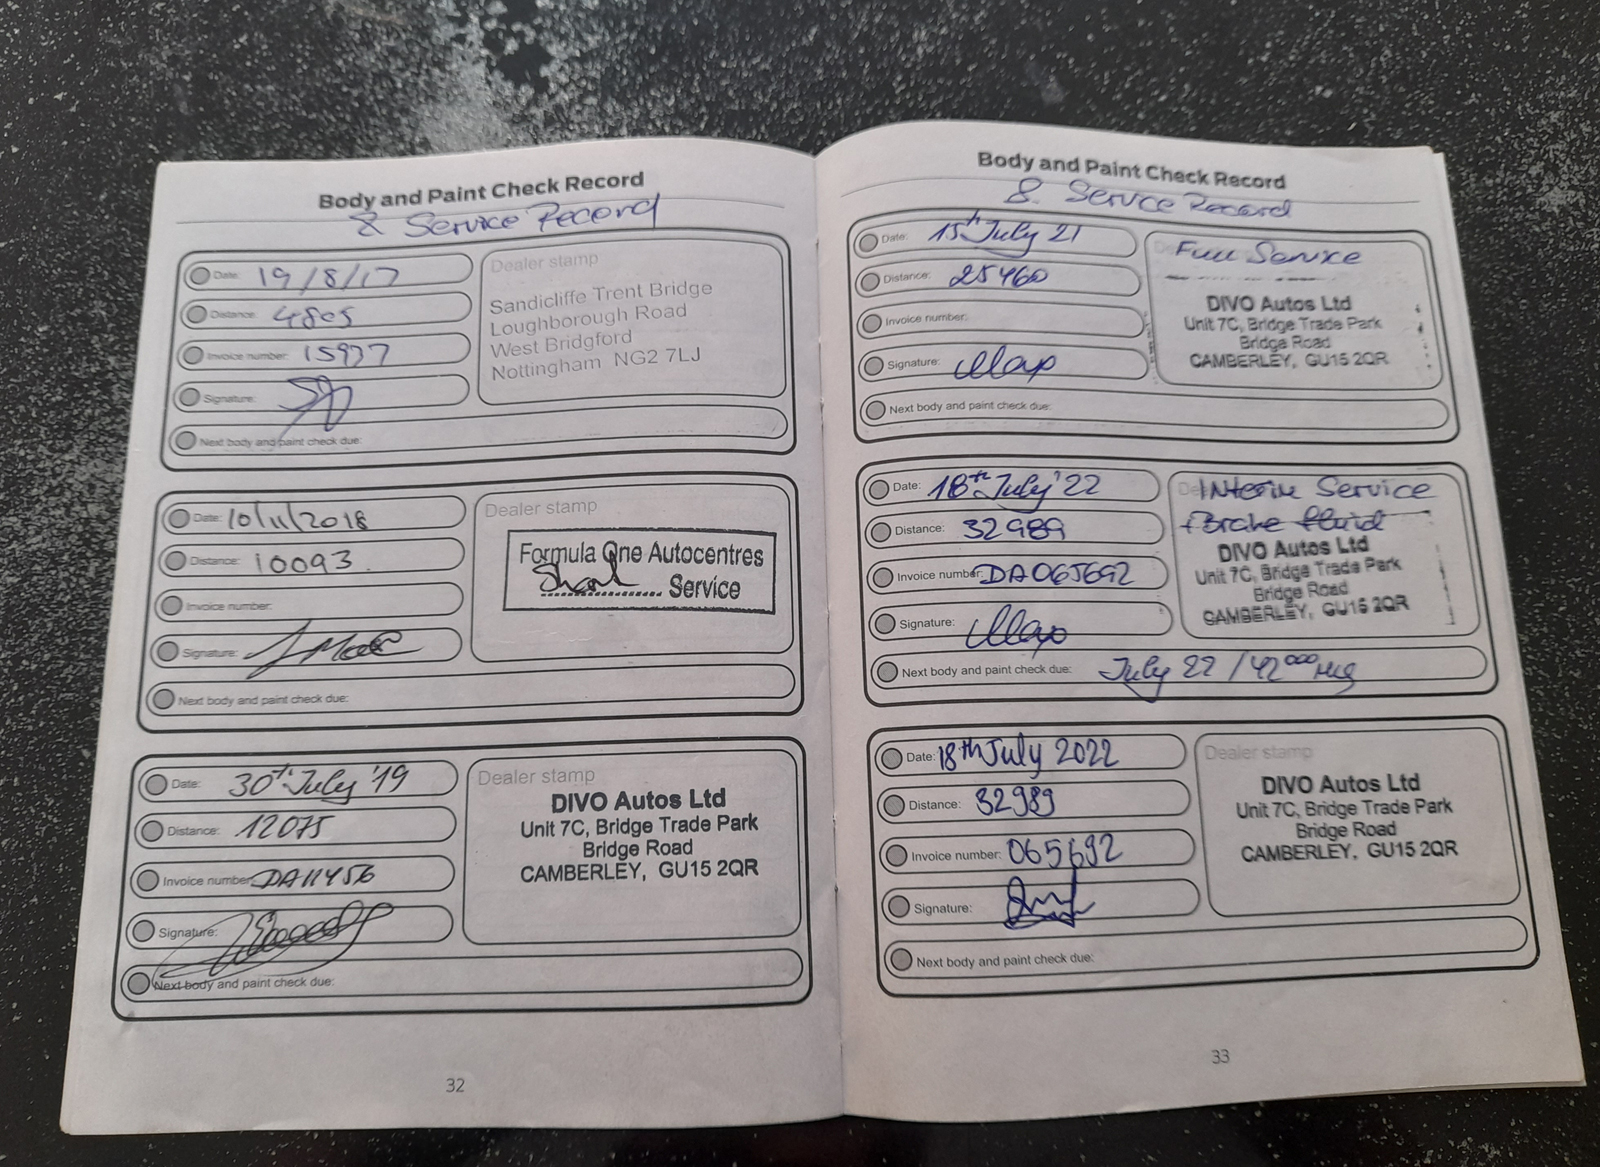 Body and Paint Check Record
& Service Record
Date: 19/8/17
Distance: 4805
Invoice number: 15977
Signature:
Next body and paint check due:
Dealer stamp
Sandicliffe Trent Bridge
Loughborough Road
West Bridgford
Nottingham NG2 7LJ
Date: 10/11/2018
Distance: 10093
Invoice number:
Signature:
Next body and paint check due:
Dealer stamp
Formula One Autocentres
Service
Date: 30th July '19
Distance: 12075
Invoice number: DA11456
Signature:
Next body and paint check due:
Dealer stamp
DIVO Autos Ltd
Unit 7C, Bridge Trade Park
Bridge Road
CAMBERLEY, GU15 2QR
32
Body and Paint Check Record
& Service Record
Date: 15th July 21
Distance: 25460
Invoice number:
Signature:
Next body and paint check due:
Full Service
DIVO Autos Ltd
Unit 7C, Bridge Trade Park
Bridge Road
CAMBERLEY, GU15 2QR
Date: 18th July '22
Distance: 32989
Invoice number: DA065692
Signature:
Next body and paint check due: July 22 / 42000
Interim Service
+Brake fluid
DIVO Autos Ltd
Unit 7C, Bridge Trade Park
Bridge Road
CAMBERLEY, GU15 2QR
Date: 18th July 2022
Distance: 32989
Invoice number: 065692
Signature:
Next body and paint check due:
Dealer stamp
DIVO Autos Ltd
Unit 7C, Bridge Trade Park
Bridge Road
CAMBERLEY, GU15 2QR
33